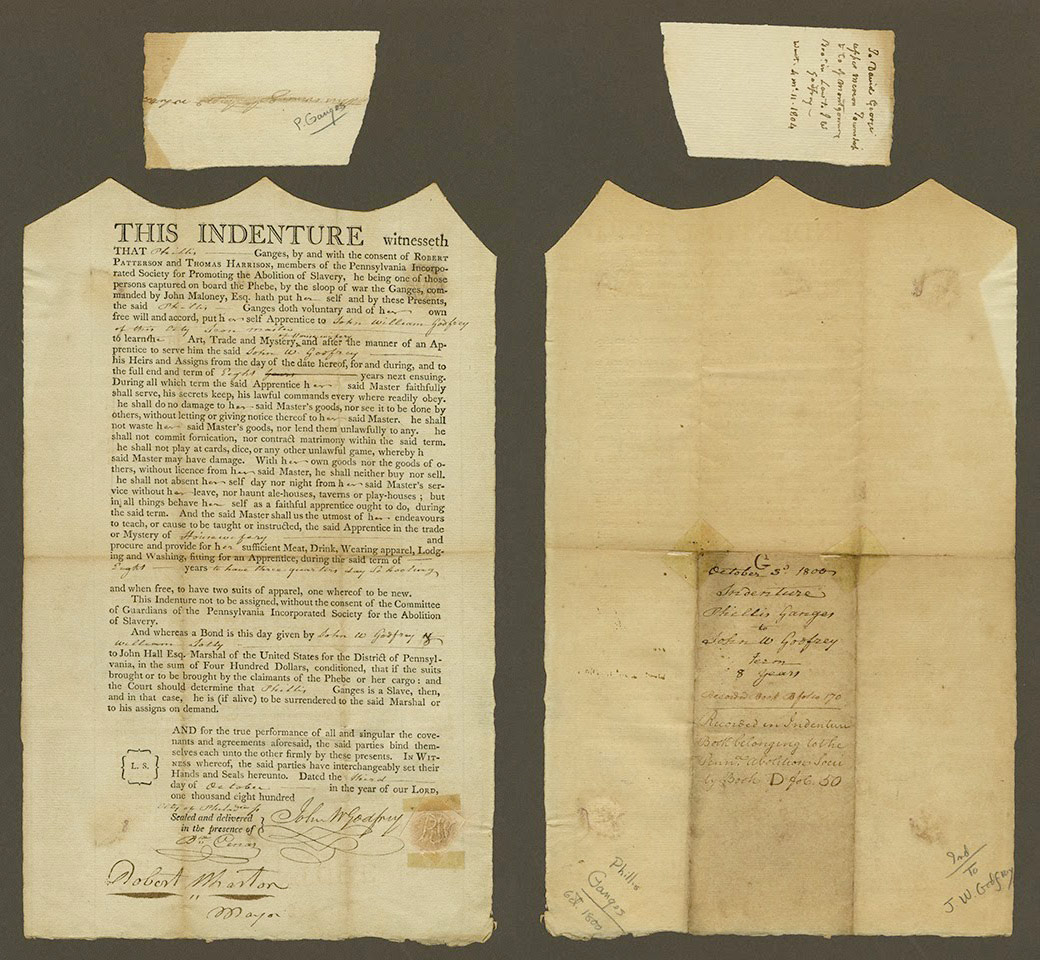 P. Ganges
To David George
upper Merion Township
& Co of Montgomery
Brot in Law to J W
Godfrey
4 mo 11. 1804
THIS INDENTURE witnesseth
THAT Phillis Ganges, by and with the consent of ROBERT
PATTERSON and THOMAS HARRISON, members of the Pennsylvania Incorpo-
rated Society for Promoting the Abolition of Slavery, he being one of those
persons captured on board the Phebe, by the sloop of war the Ganges, com-
manded by John Maloney, Esq. hath put her self and by these Presents,
the said Phillis Ganges doth voluntary and of her own
free will and accord, put her self Apprentice to John William Godfrey
of this City
to learn the Art, Trade and Mystery of Housewifery and after the manner of an Ap-
prentice to serve him the said John W Godfrey
his Heirs and Assigns from the day of the date hereof, for and during, and to
the full end and term of Eight years next ensuing.
During all which term the said Apprentice her said Master faithfully
shall serve, his secrets keep, his lawful commands every where readily obey.
he shall do no damage to her said Master's goods, nor see it to be done by
others, without letting or giving notice thereof to her said Master. he shall
not waste her said Master's goods, nor lend them unlawfully to any. he
shall not commit fornication, nor contract matrimony within the said term.
he shall not play at cards, dice, or any other unlawful game, whereby h
said Master may have damage. With her own goods nor the goods of o-
thers, without licence from her said Master, he shall neither buy nor sell.
he shall not absent her self day nor night from her said Master's ser-
vice without her leave, nor haunt ale-houses, taverns or play-houses; but
in all things behave her self as a faithful apprentice ought to do, during
the said term. And the said Master shall us the utmost of her endeavours
to teach, or cause to be taught or instructed, the said Apprentice in the trade
or Mystery of Housewifery and
procure and provide for her sufficient Meat, Drink, Wearing apparel, Lodg-
ing and Washing, fitting for an Apprentice, during the said term of
Eight years to have three quarters day Schooling
and when free, to have two suits of apparel, one whereof to be new.
This Indenture not to be assigned, without the consent of the Committee
of Guardians of the Pennsylvania Incorporated Society for the Abolition
of Slavery.
And whereas a Bond is this day given by John W Godfrey &
William
to John Hall Esq. Marshal of the United States for the District of Pennsyl-
vania, in the sum of Four Hundred Dollars, conditioned, that if the suits
brought or to be brought by the claimants of the Phebe or her cargo: and
the Court should determine that Phillis Ganges is a Slave, then,
and in that case, he is (if alive) to be surrendered to the said Marshal or
to his assigns on demand.
AND for the true performance of all and singular the cove-
nants and agreements aforesaid, the said parties bind them-
selves each unto the other firmly by these presents. IN WIT-
NESS whereof, the said parties have interchangeably set their
Hands and Seals hereunto. Dated the third
day of October in the year of our LORD,
one thousand eight hundred
L. S.
City of Philada ss
Sealed and delivered
in the presence of
John W Godfrey
Robert Wharton
Mayor
G
October 3d 1800
Indenture
Phillis Ganges
to
John W Godfrey
Term
8 Years
Recorded Book B folio 170
Recorded in Indenture
Book belonging to the
Penna. Abolition Soci
ty Book D fol. 50
Phillis
Ganges
Oct. 1800
Ind
To
J. W. Godfrey